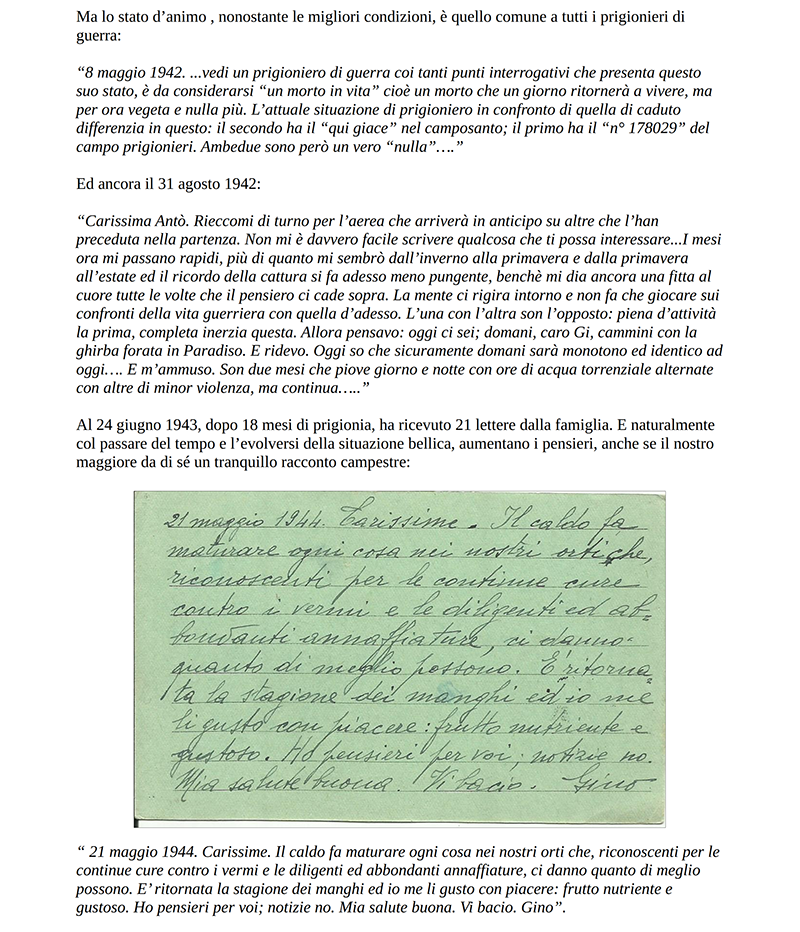 Ma lo stato d’animo , nonostante le migliori condizioni, è quello comune a tutti i prigionieri di
guerra:
“8 maggio 1942. ...vedi un prigioniero di guerra coi tanti punti interrogativi che presenta questo
suo stato, è da considerarsi “un morto in vita” cioè un morto che un giorno ritornerà a vivere, ma
per ora vegeta e nulla più. L’attuale situazione di prigioniero in confronto di quella di caduto
differenzia in questo: il secondo ha il “qui giace” nel camposanto; il primo ha il “n° 178029” del
campo prigionieri. Ambedue sono però un vero “nulla”….”
Ed ancora il 31 agosto 1942:
“Carissima Antò. Rieccomi di turno per l’aerea che arriverà in anticipo su altre che l’han
preceduta nella partenza. Non mi è davvero facile scrivere qualcosa che ti possa interessare...I mesi
ora mi passano rapidi, più di quanto mi sembrò dall’inverno alla primavera e dalla primavera
all’estate ed il ricordo della cattura si fa adesso meno pungente, benchè mi dia ancora una fitta al
cuore tutte le volte che il pensiero ci cade sopra. La mente ci rigira intorno e non fa che giocare sui
confronti della vita guerriera con quella d’adesso. L’una con l’altra son l’opposto: piena d’attività
la prima, completa inerzia questa. Allora pensavo: oggi ci sei; domani, caro Gi, cammini con la
ghirba forata in Paradiso. E ridevo. Oggi so che sicuramente domani sarà monotono ed identico ad
oggi…. E m’ammuso. Son due mesi che piove giorno e notte con ore di acqua torrenziale alternate
con altre di minor violenza, ma continua…..”
Al 24 giugno 1943, dopo 18 mesi di prigionia, ha ricevuto 21 lettere dalla famiglia. E naturalmente
col passare del tempo e l’evolversi della situazione bellica, aumentano i pensieri, anche se il nostro
maggiore da di sé un tranquillo racconto campestre:
21 maggio 1944. Carissime. Il caldo fa
maturare ogni cosa nei nostri orti che,
riconoscenti per le continue cure
contro i vermi e le diligenti ed ab=
bondanti annaffiature, ci danno
quanto di meglio possono. E' ritorna=
ta la stagione dei manghi ed io me
li gusto con piacere: frutto nutriente e
gustoso. Ho pensieri per voi; notizie no.
Mia salute buona. Vi bacio. Gino
“ 21 maggio 1944. Carissime. Il caldo fa maturare ogni cosa nei nostri orti che, riconoscenti per le
continue cure contro i vermi e le diligenti ed abbondanti annaffiature, ci danno quanto di meglio
possono. E’ ritornata la stagione dei manghi ed io me li gusto con piacere: frutto nutriente e
gustoso. Ho pensieri per voi; notizie no. Mia salute buona. Vi bacio. Gino”.